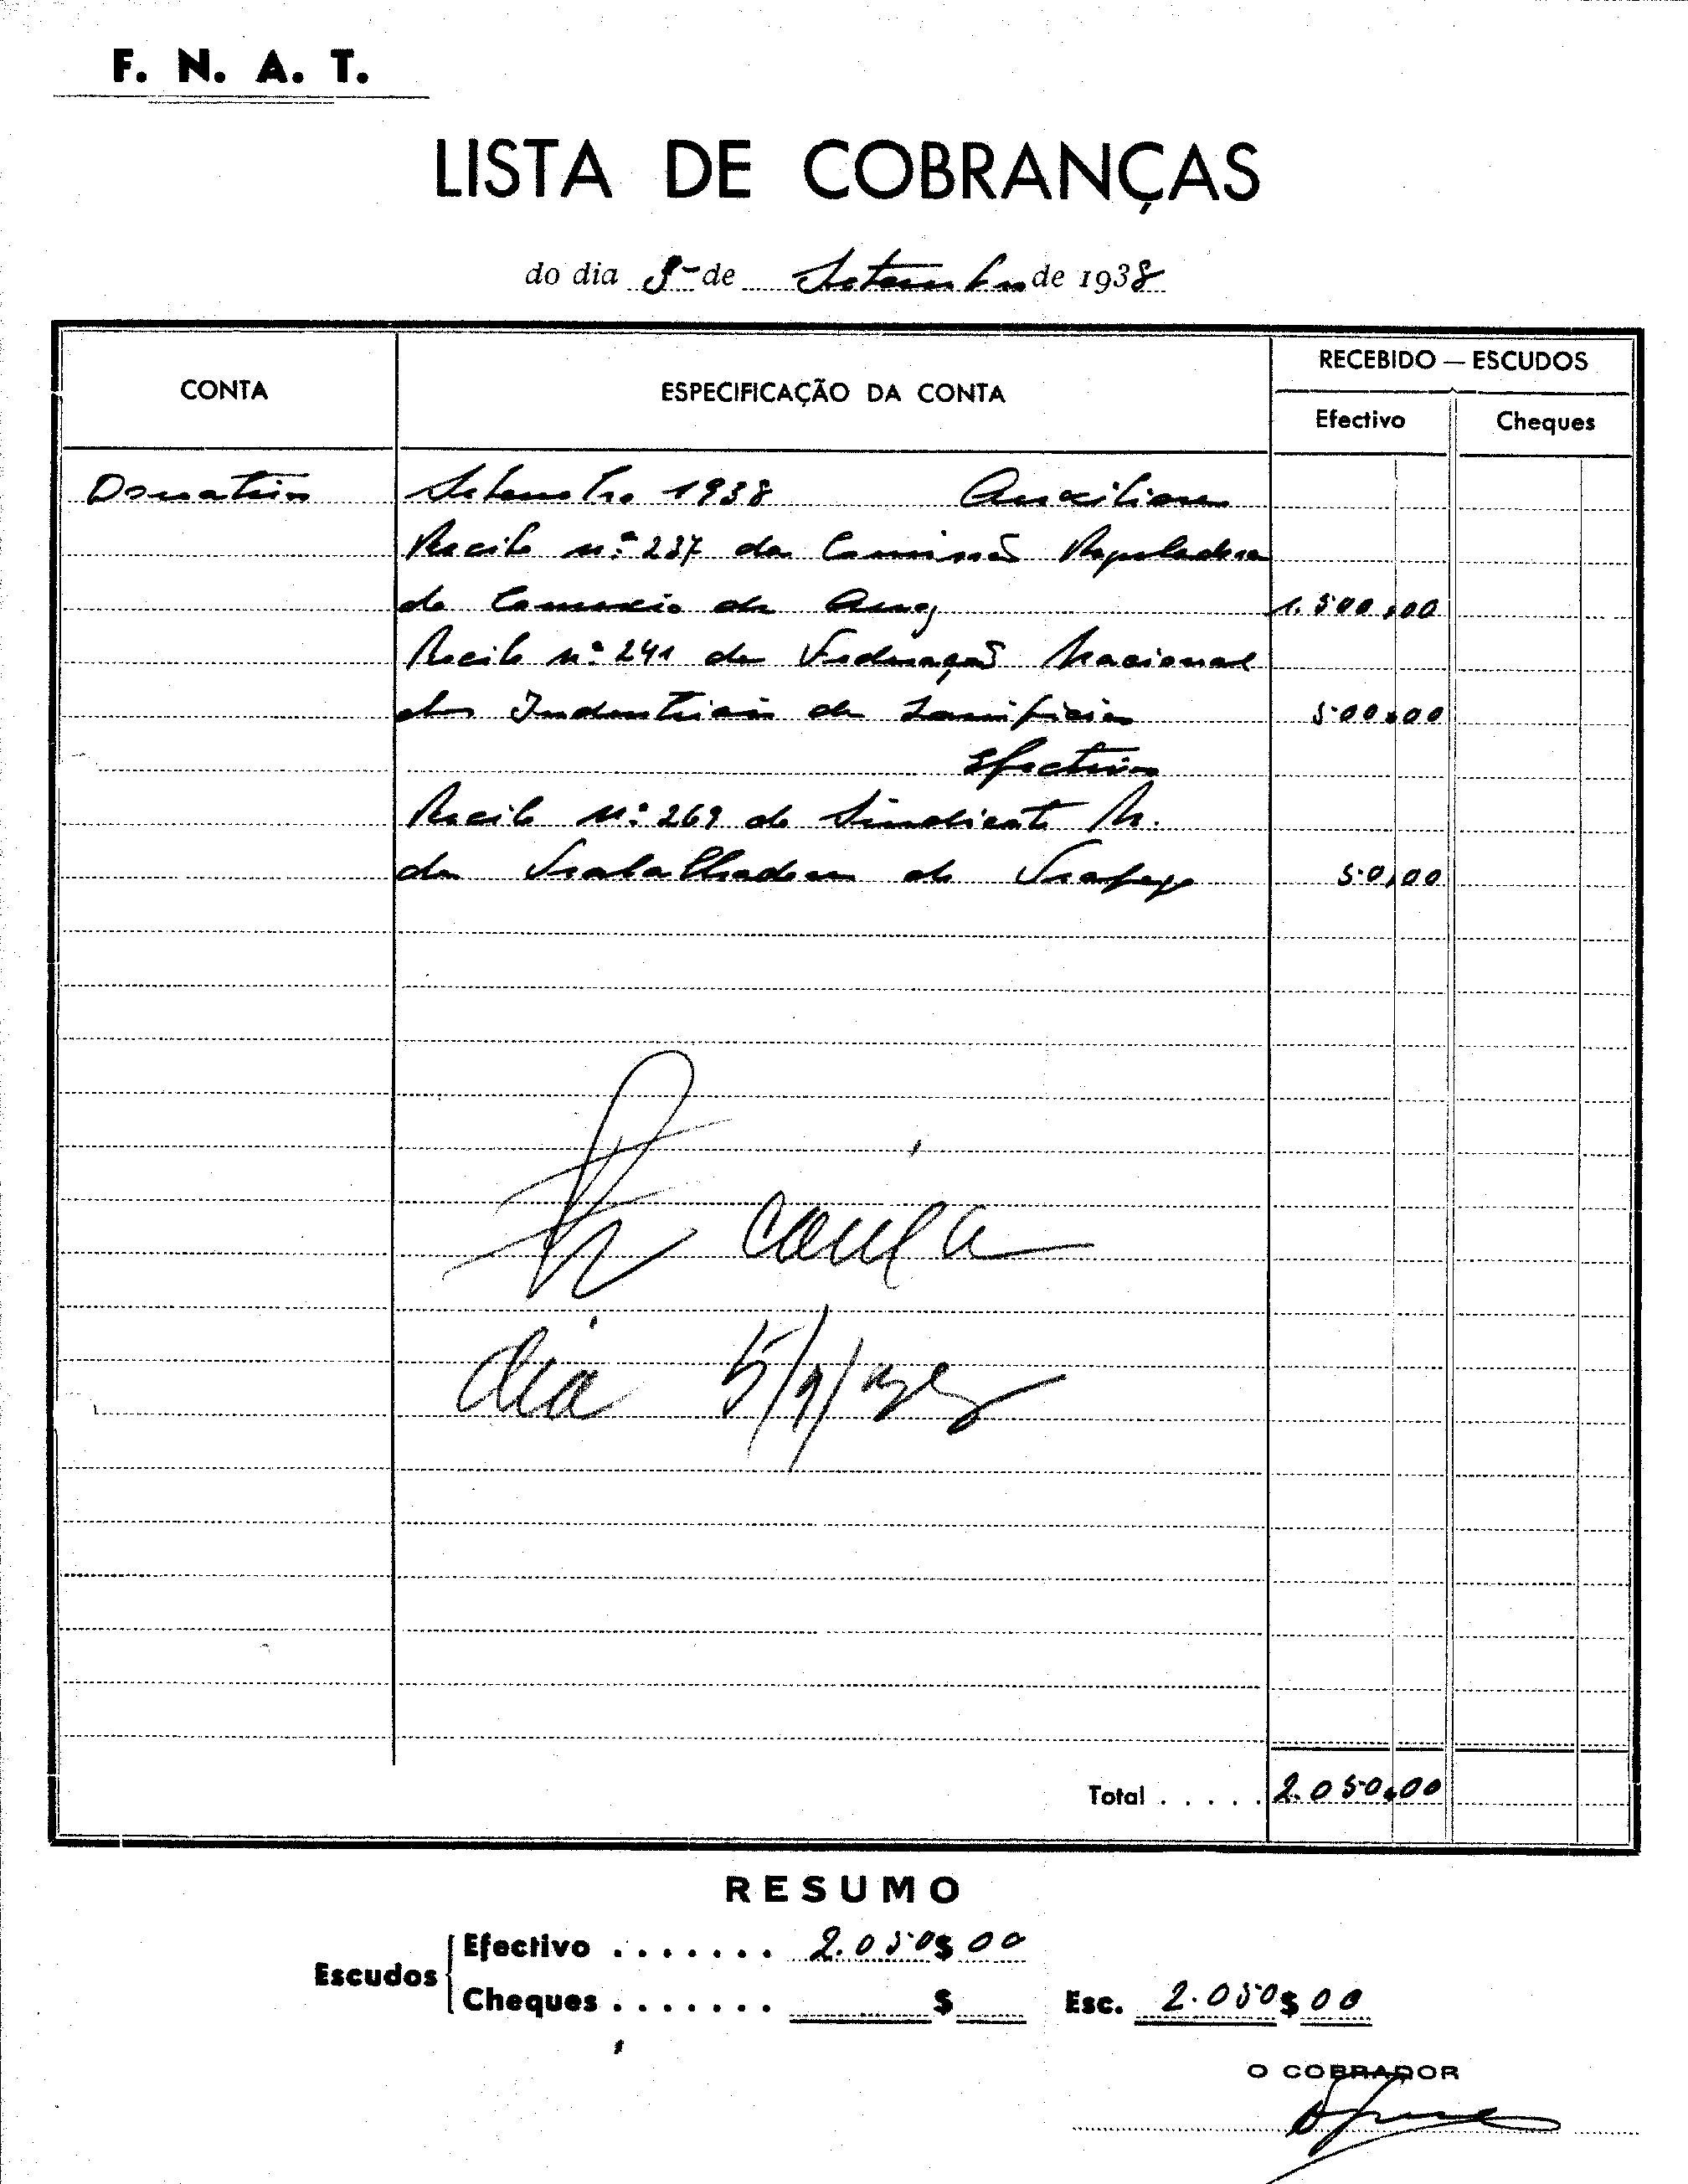 F. N. A. T.
LISTA DE COBRANÇAS
do dia 5 de Setembro de 1938
CONTA
ESPECIFICAÇÃO DA CONTA
RECEBIDO — ESCUDOS
Efectivo
Cheques
Donativos Setembro 1938 Auxiliares
Recibo n.º 237 da Comissão Reguladora
do Comercio de Arroz 1.500,00
Recibo n.º 241 da Federação Nacional
dos Industriais de Lanificios 500,00
Efectivos
Recibo N.º 269 do Sindicato N.
dos Trabalhadores do Trafego 50,00
caixa
dia 5/9/938
Total . . . . . 2.050,00
RESUMO
Escudos
Efectivo . . . . . . . 2.050$00
Cheques . . . . . . . $
Esc. 2.050$00
O COBRADOR